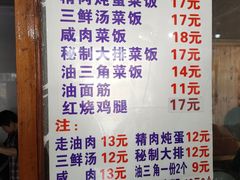 精肉炖蛋菜饭 17元
三鲜汤菜饭 17元
咸肉菜饭 18元
秘制大排菜饭 17元
油三角菜饭 14元
油面筋 11元
红烧鸡腿 17元
注:
走油肉 13元 精肉炖蛋 12元
三鲜汤 12元 秘制大排 12元
咸 肉 13元 油三角一份2个 9元